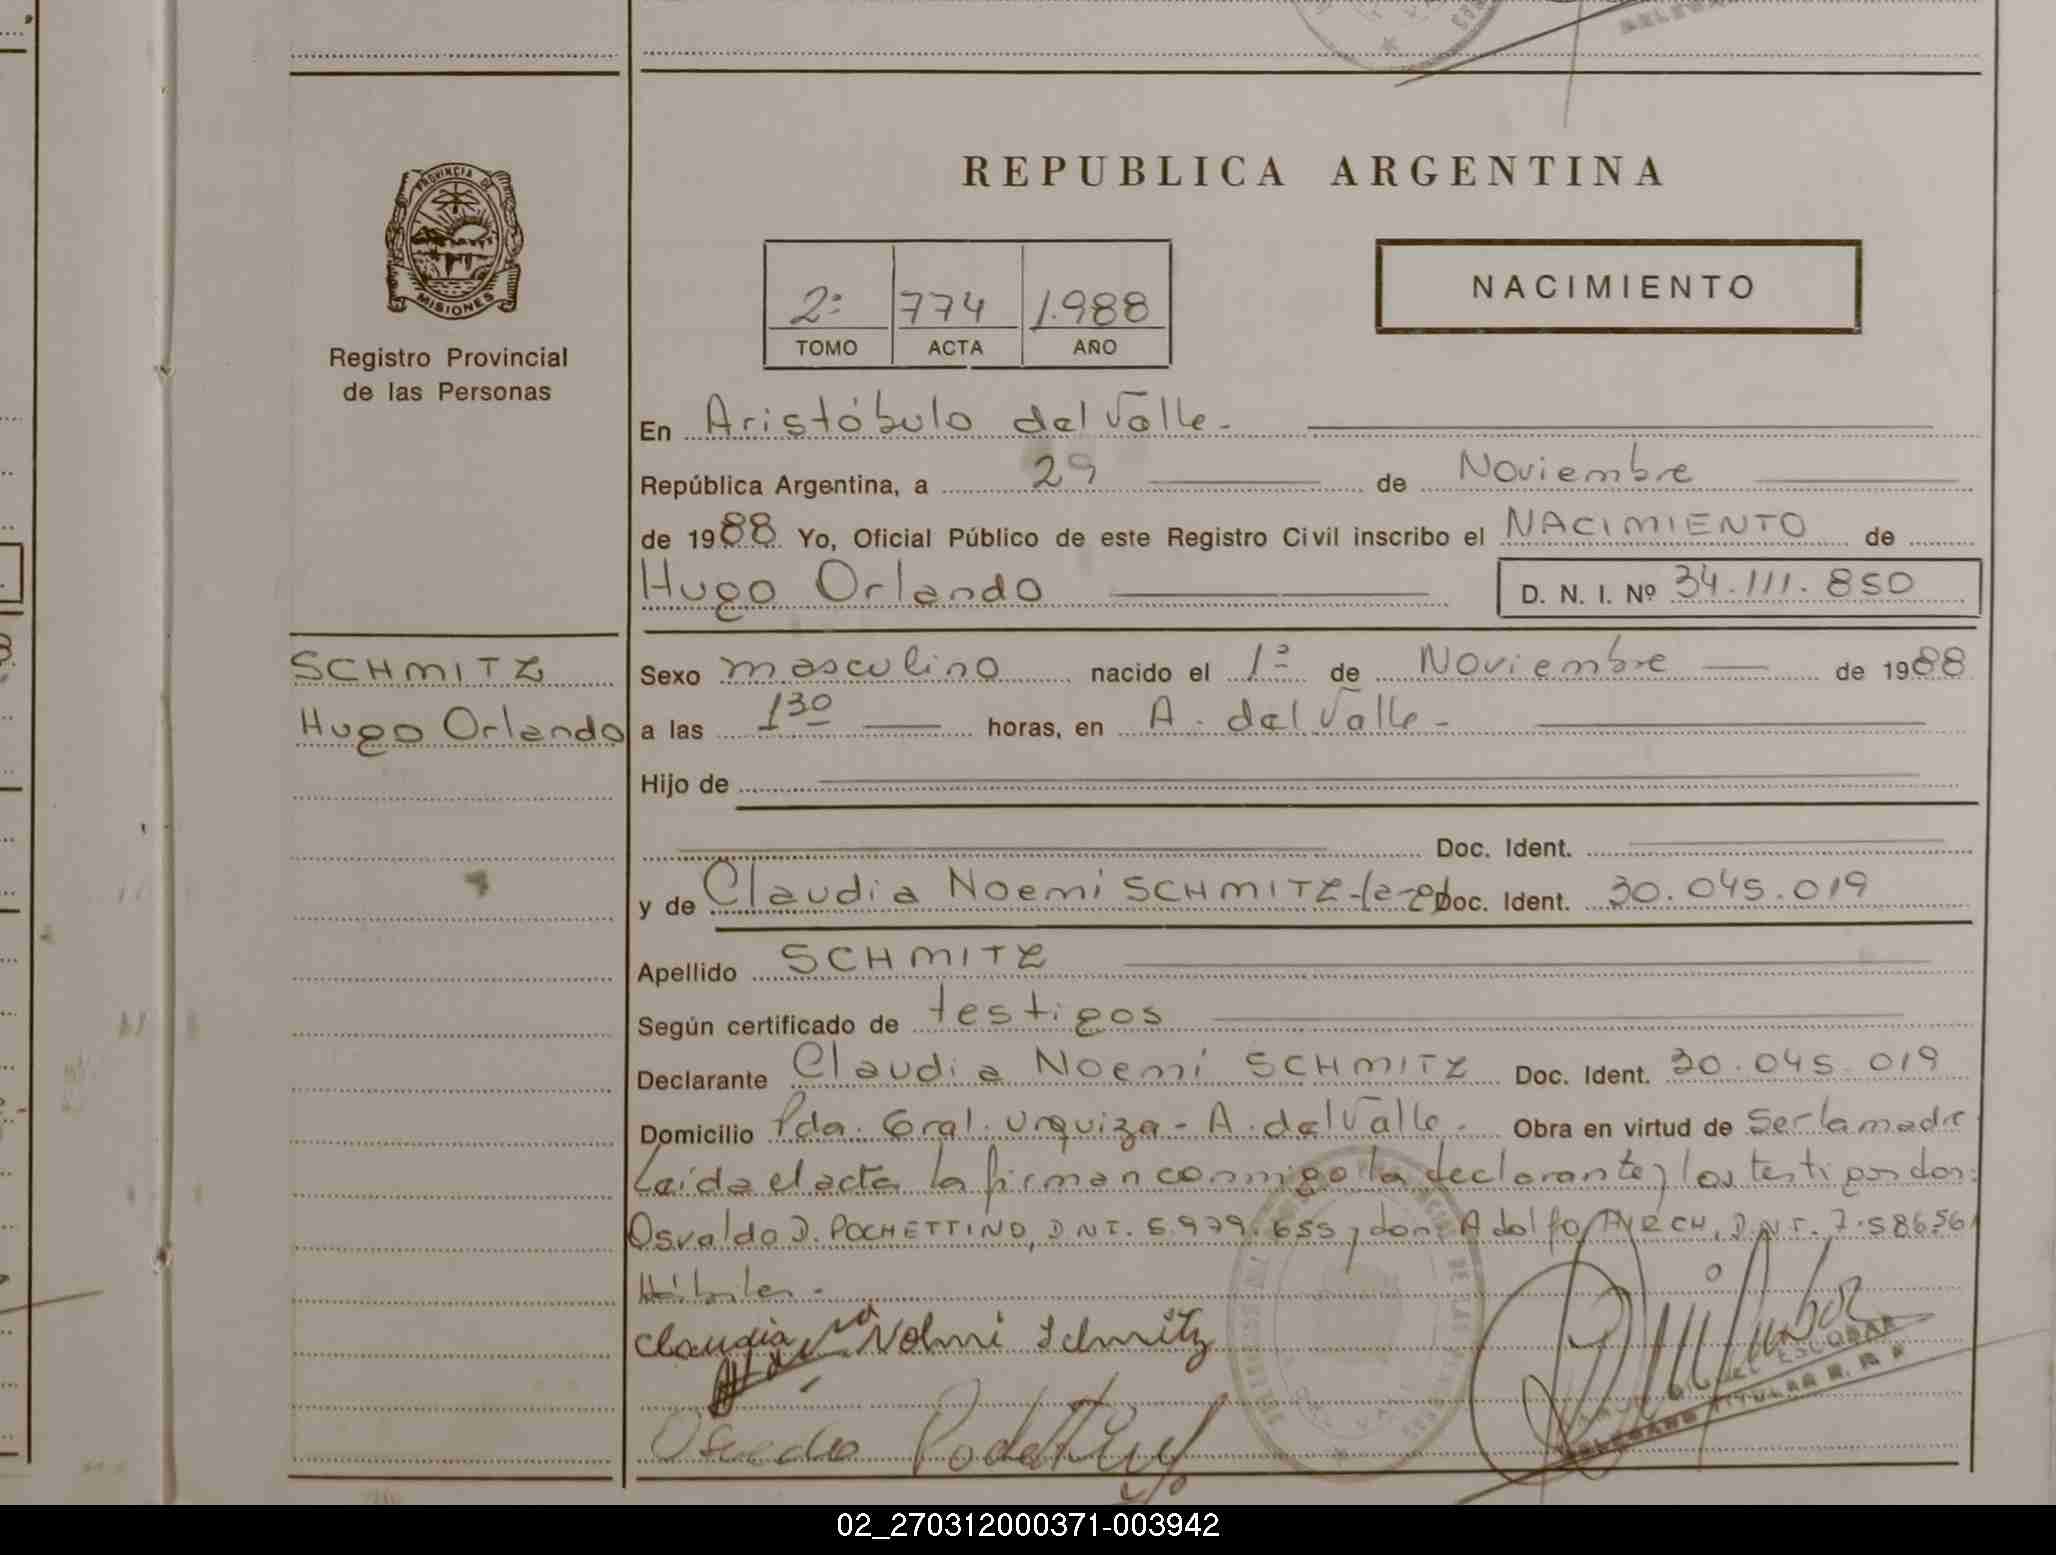 REPUBLICA ARGENTINA
PROVINCIA DE
MISIONES
Registro Provincial
de las Personas
2º 774 1.988
TOMO ACTA AÑO
NACIMIENTO
En Aristóbulo del Valle.-
República Argentina, a 29 de Noviembre
de 1988 Yo, Oficial Público de este Registro Civil inscribo el NACIMIENTO de
Hugo Orlando D. N. I. Nº 34.111.850
SCHMITZ
Hugo Orlando
Sexo masculino nacido el 1º de Noviembre de 1988
a las 1 30 horas, en A. del Valle -
Hijo de
Doc. Ident.
y de Claudia Noemí SCHMITZ Doc. Ident. 30.045.019
Apellido SCHMITZ
Según certificado de testigos
Declarante Claudia Noemí SCHMITZ Doc. Ident. 30.045.019
Domicilio Pda. Gral. Urquiza - A. del Valle. Obra en virtud de Ser la madre
Leída el acta la firman conmigo la declarante y los testigos don:
Osvaldo D. POCHETTINO, D.N.I. 6.979.655 y don Adolfo D.N.I.
Hábiles.-
Claudia Nohmi Schmitz
ESCOBAR
DELEGADO TITULAR R. P.
02_270312000371-003942